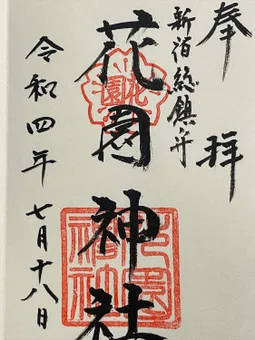 奉拝
新宿總鎮守
花園神社
令和四年七月十八日
花園
花園神社